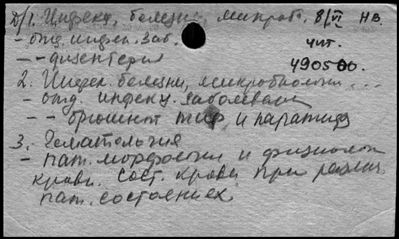 Д/1. Инфекц. болезни, микроб. 8/VI НВ.
- отд. инфек. заб. чит.
- - дизентерия 490500.
2. Инфек. болезни, микробиология ...
- отд. инфекц. заболевани
- - брюшной тиф и паратиф
3. Гематология
- пат. морфологии и физиолог
крови. Сост. крови при разли.
пат. состояниях